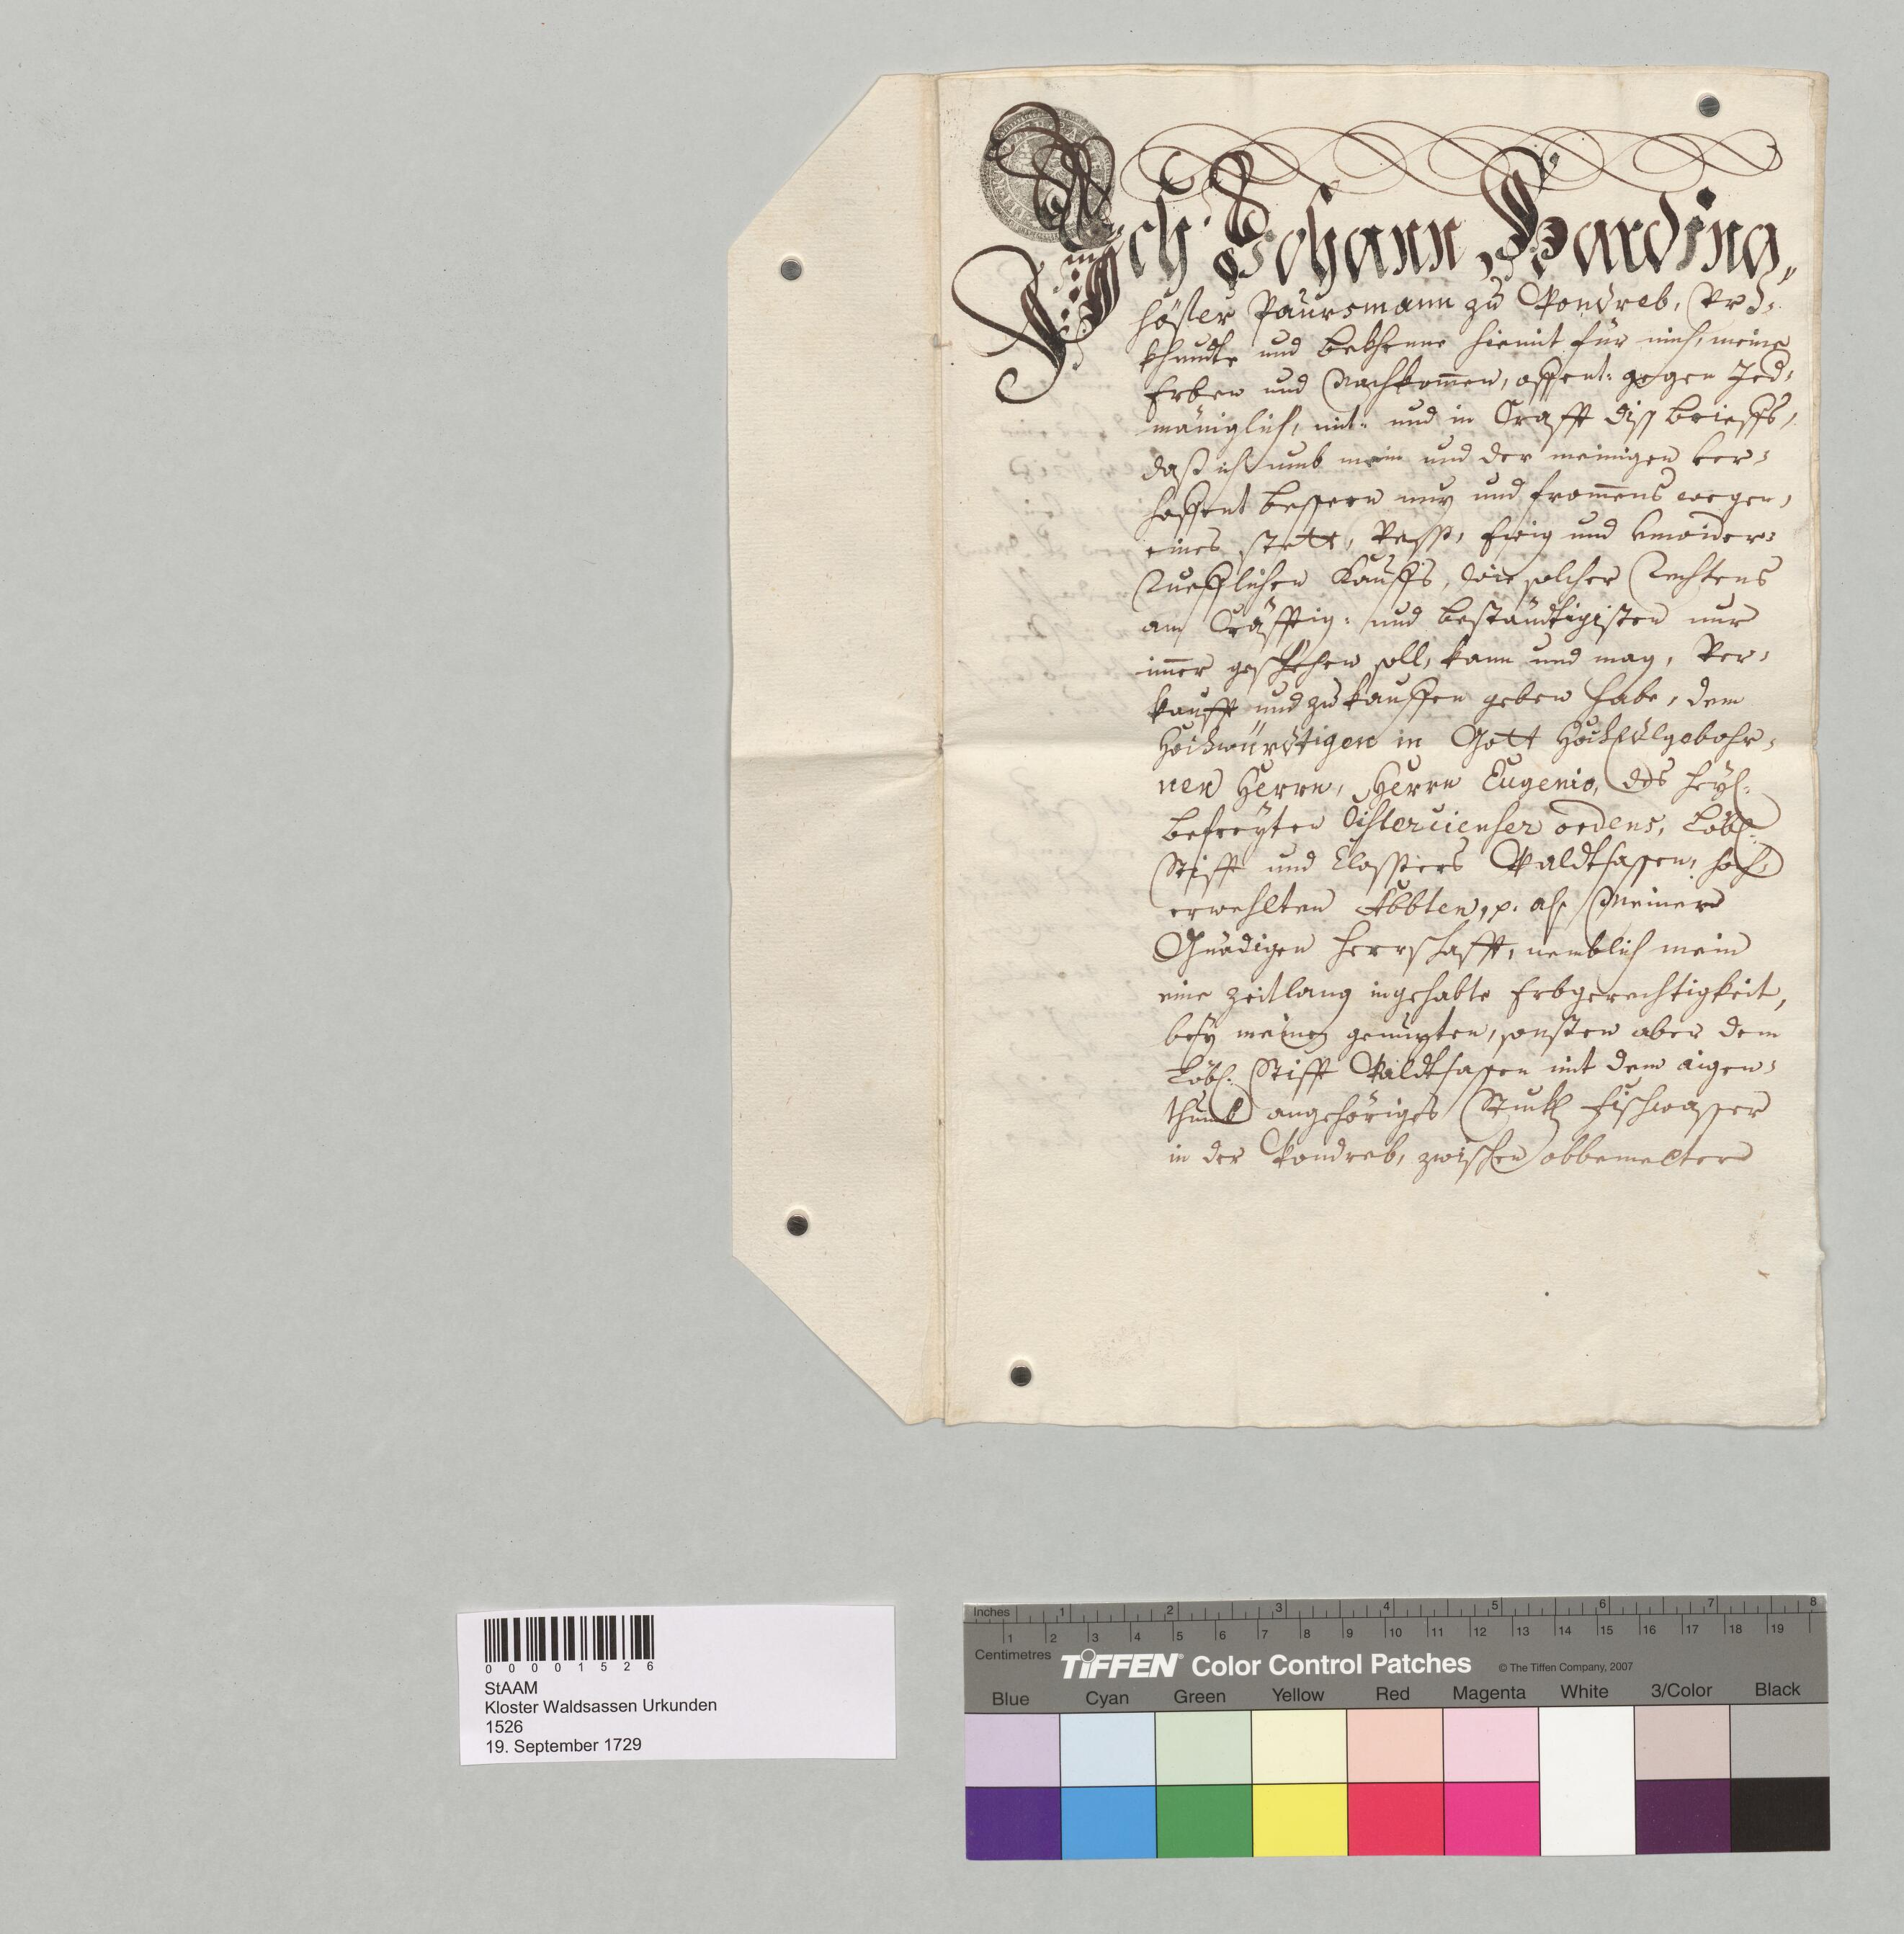 Ich Johann Harding,
höffer Paursmann zu Wondreb, Urd-
khundte und bekhenne hiemit für mich, meine
Erben und Nachkom̅en, offent: gegen Jed-
mäniglich, mit: und in Crafft diss brieffs,
daß ich umb mein und der meinigen ver-
hoffent bessern nuz und from̅ens wegen,
eines stett, Vesst, Ewig und unwider-
Rueflichen Kauffs, wie solcher Rechtens
am Cräfftig: und beständtigisten nur
im̅er geschehen soll, kann und mag, Ver-
kaufft und zukauffen geben habe, dem
Hochwürdtigen in Gott Hochedlgebohr-
nen Herrn, Herrn Eugenio, des heyl:
befreyten Cistercienser ordens, Löbl:
Stifft und Closters Waldtsassen, hoch-
erwehlten Abbten, p. als Meiner
Gnädigen herrschafft, nemblich mein
eine Zeitlang ingehabte Erbgerechtigkeit,
bey meinem genuzten, sonsten aber dem
Löbl: Stifft Waldtsassen mit dem aigen-
thumb angehöriges Stuckh Fischwasser
in der Wondreb, zwischen obbemelter
0 0 0 0 1 5 2 6
StAAM
Kloster Waldsassen Urkunden
1526
19. September 1729
Inches 1 2 3 4 5 6 7 8
1 2 3 4 5 6 7 8 9 10 11 12 13 14 15 16 17 18 19
Centimetres
TIFFEN® Color Control Patches © The Tiffen Company, 2007
Blue Cyan Green Yellow Red Magenta White 3/Color Black